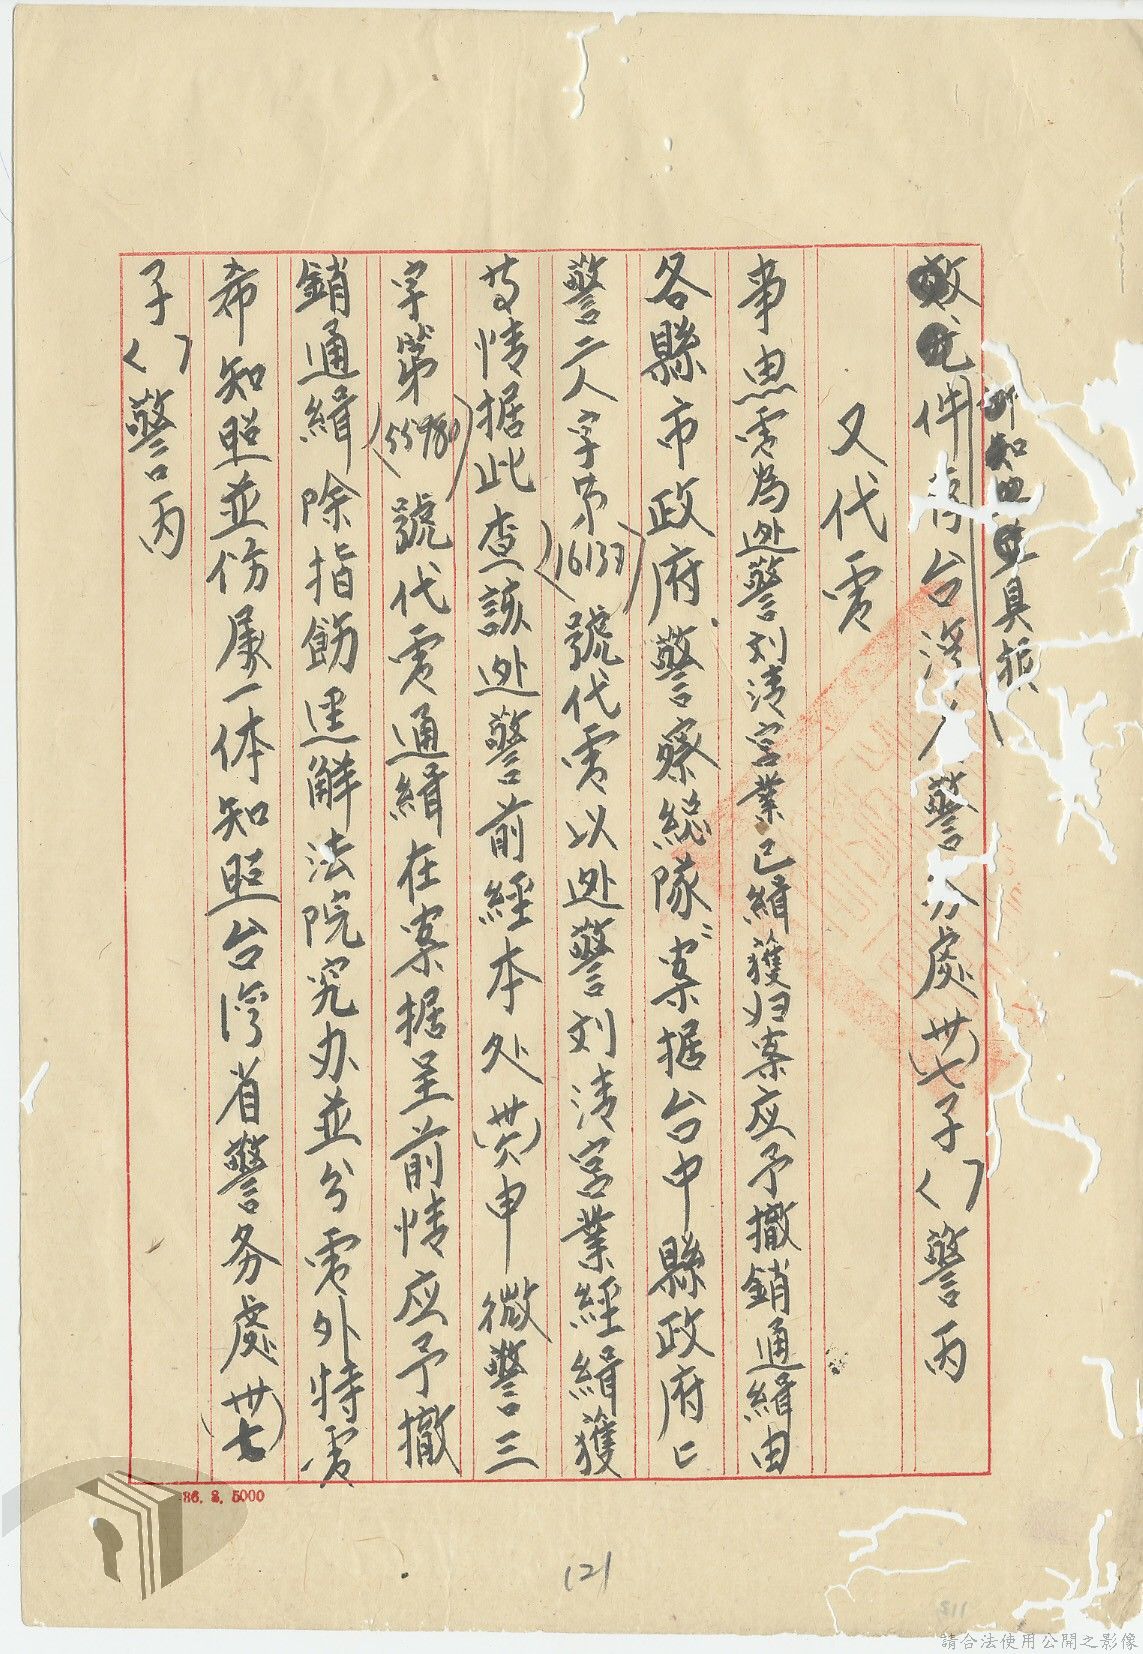 知照並具報
件存台灣省警务處(卅七)子〈 〉警丙
又代電
事由 電為逃警刘清宮業已緝獲归案应予撤銷通緝由
各縣市政府警察総隊:案据台中縣政府亡
警二人字第(16137)號代電以逃警刘清宮業經緝獲
等情据此查該逃警前經本处(卅六)申微警三
字第(55980)號代電通緝在案据呈前情应予撤
銷通緝除指飭逕解法院究办並分電外特電
希知照並仿属一体知照台灣省警务處(卅七)
子〈 〉警丙
86. 3. 5000
121
請合法使用公開之影像